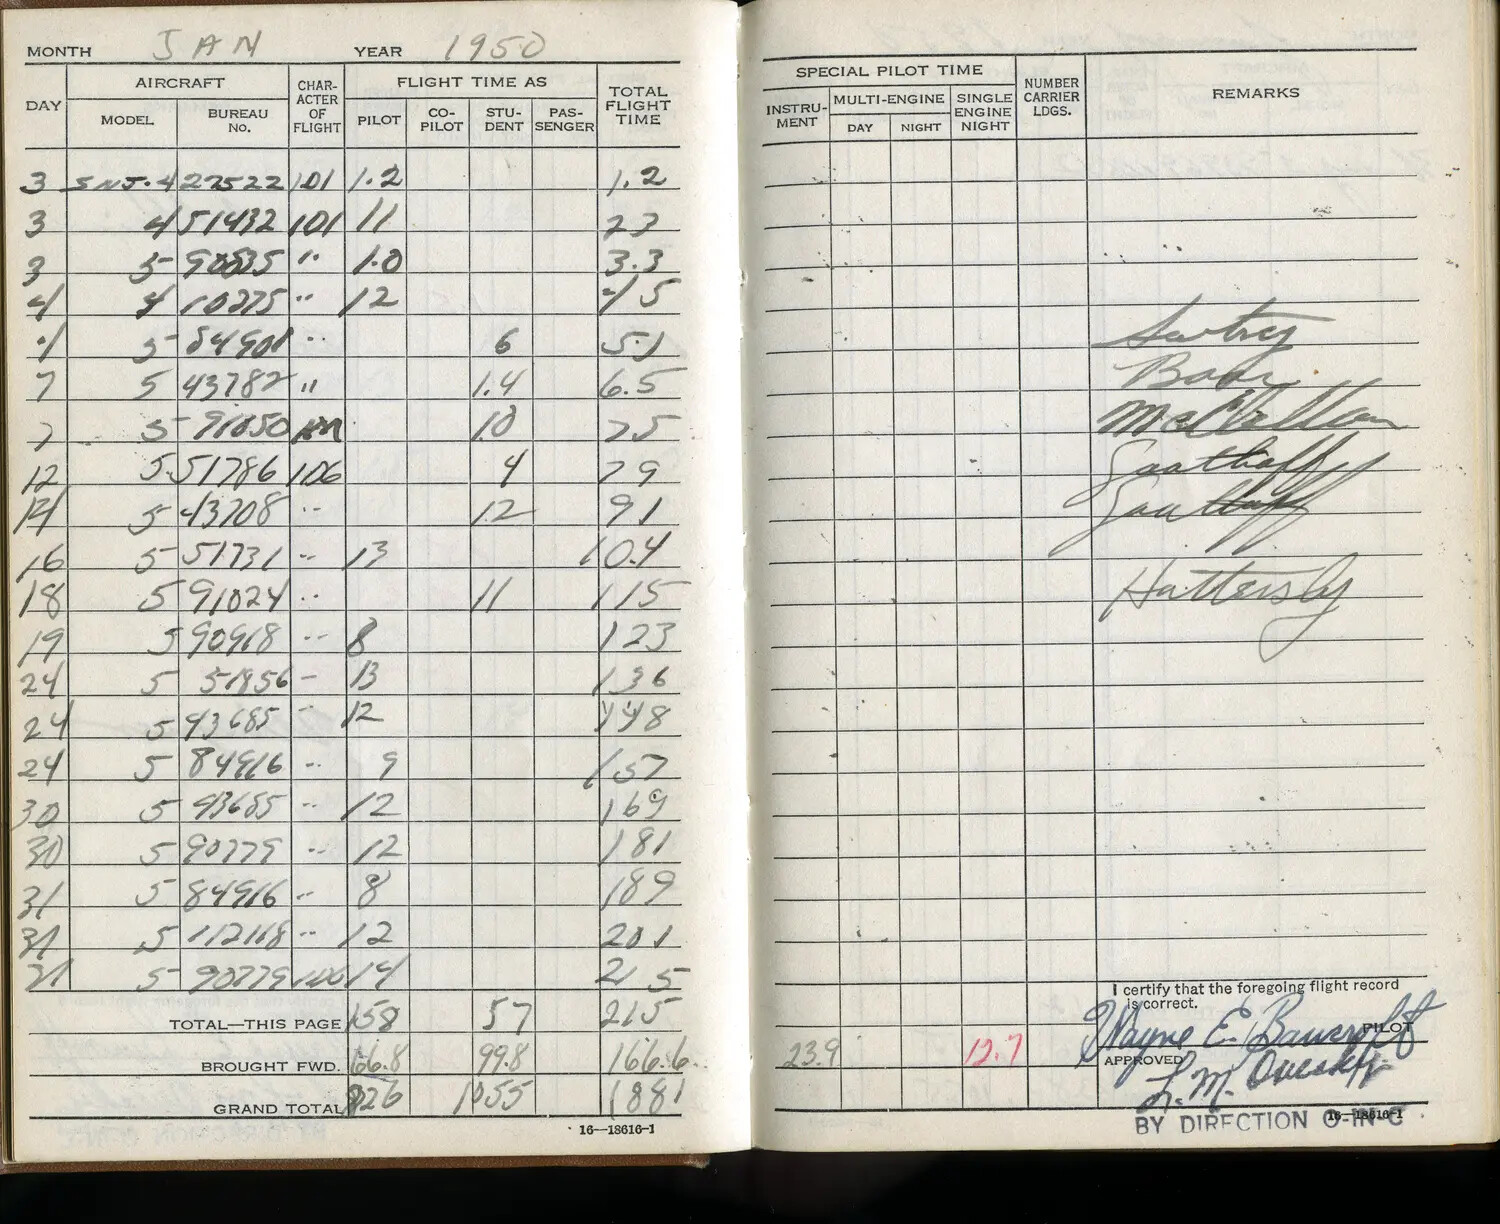 MONTH JAN YEAR 1950
DAY AIRCRAFT MODEL BUREAU NO. CHAR- ACTER OF FLIGHT FLIGHT TIME AS PILOT CO- PILOT STU- DENT PAS- SENGER TOTAL FLIGHT TIME
3 SNJ-4 27522 101 1.2 1.2
3 4 51432 101 11 23
3 5 90835 " 1.0 3.3
4 4 10275 " 12 45
4 5 84901 " 6 5.1
7 5 43782 " 1.4 6.5
7 5 91050 10 75
12 5 51786 106 4 79
14 5 43708 " 12 91
16 5 51731 " 13 10.4
18 5 91024 " 11 115
19 5 90918 " 8 123
24 5 51856 " 13 136
24 5 43685 " 12 148
24 5 84916 " 9 157
30 5 43685 " 12 169
30 5 90779 " 12 181
31 5 84916 " 8 189
31 5 112118 " 12 201
31 5 90779 106 14 215
TOTAL—THIS PAGE 158 57 215
BROUGHT FWD. 66.8 99.8 166.6
GRAND TOTAL 826 1055 1881
16—18616-1
SPECIAL PILOT TIME INSTRU- MENT MULTI-ENGINE DAY NIGHT SINGLE ENGINE NIGHT NUMBER CARRIER LDGS. REMARKS
McClellan
Gaathoff
Gaathoff
Hattersly
I certify that the foregoing flight record
is correct.
Wayne E. Bancroft PILOT
23.9 12.7 APPROVED
L. M.
16—18616-1
BY DIRECTION O-IN-C